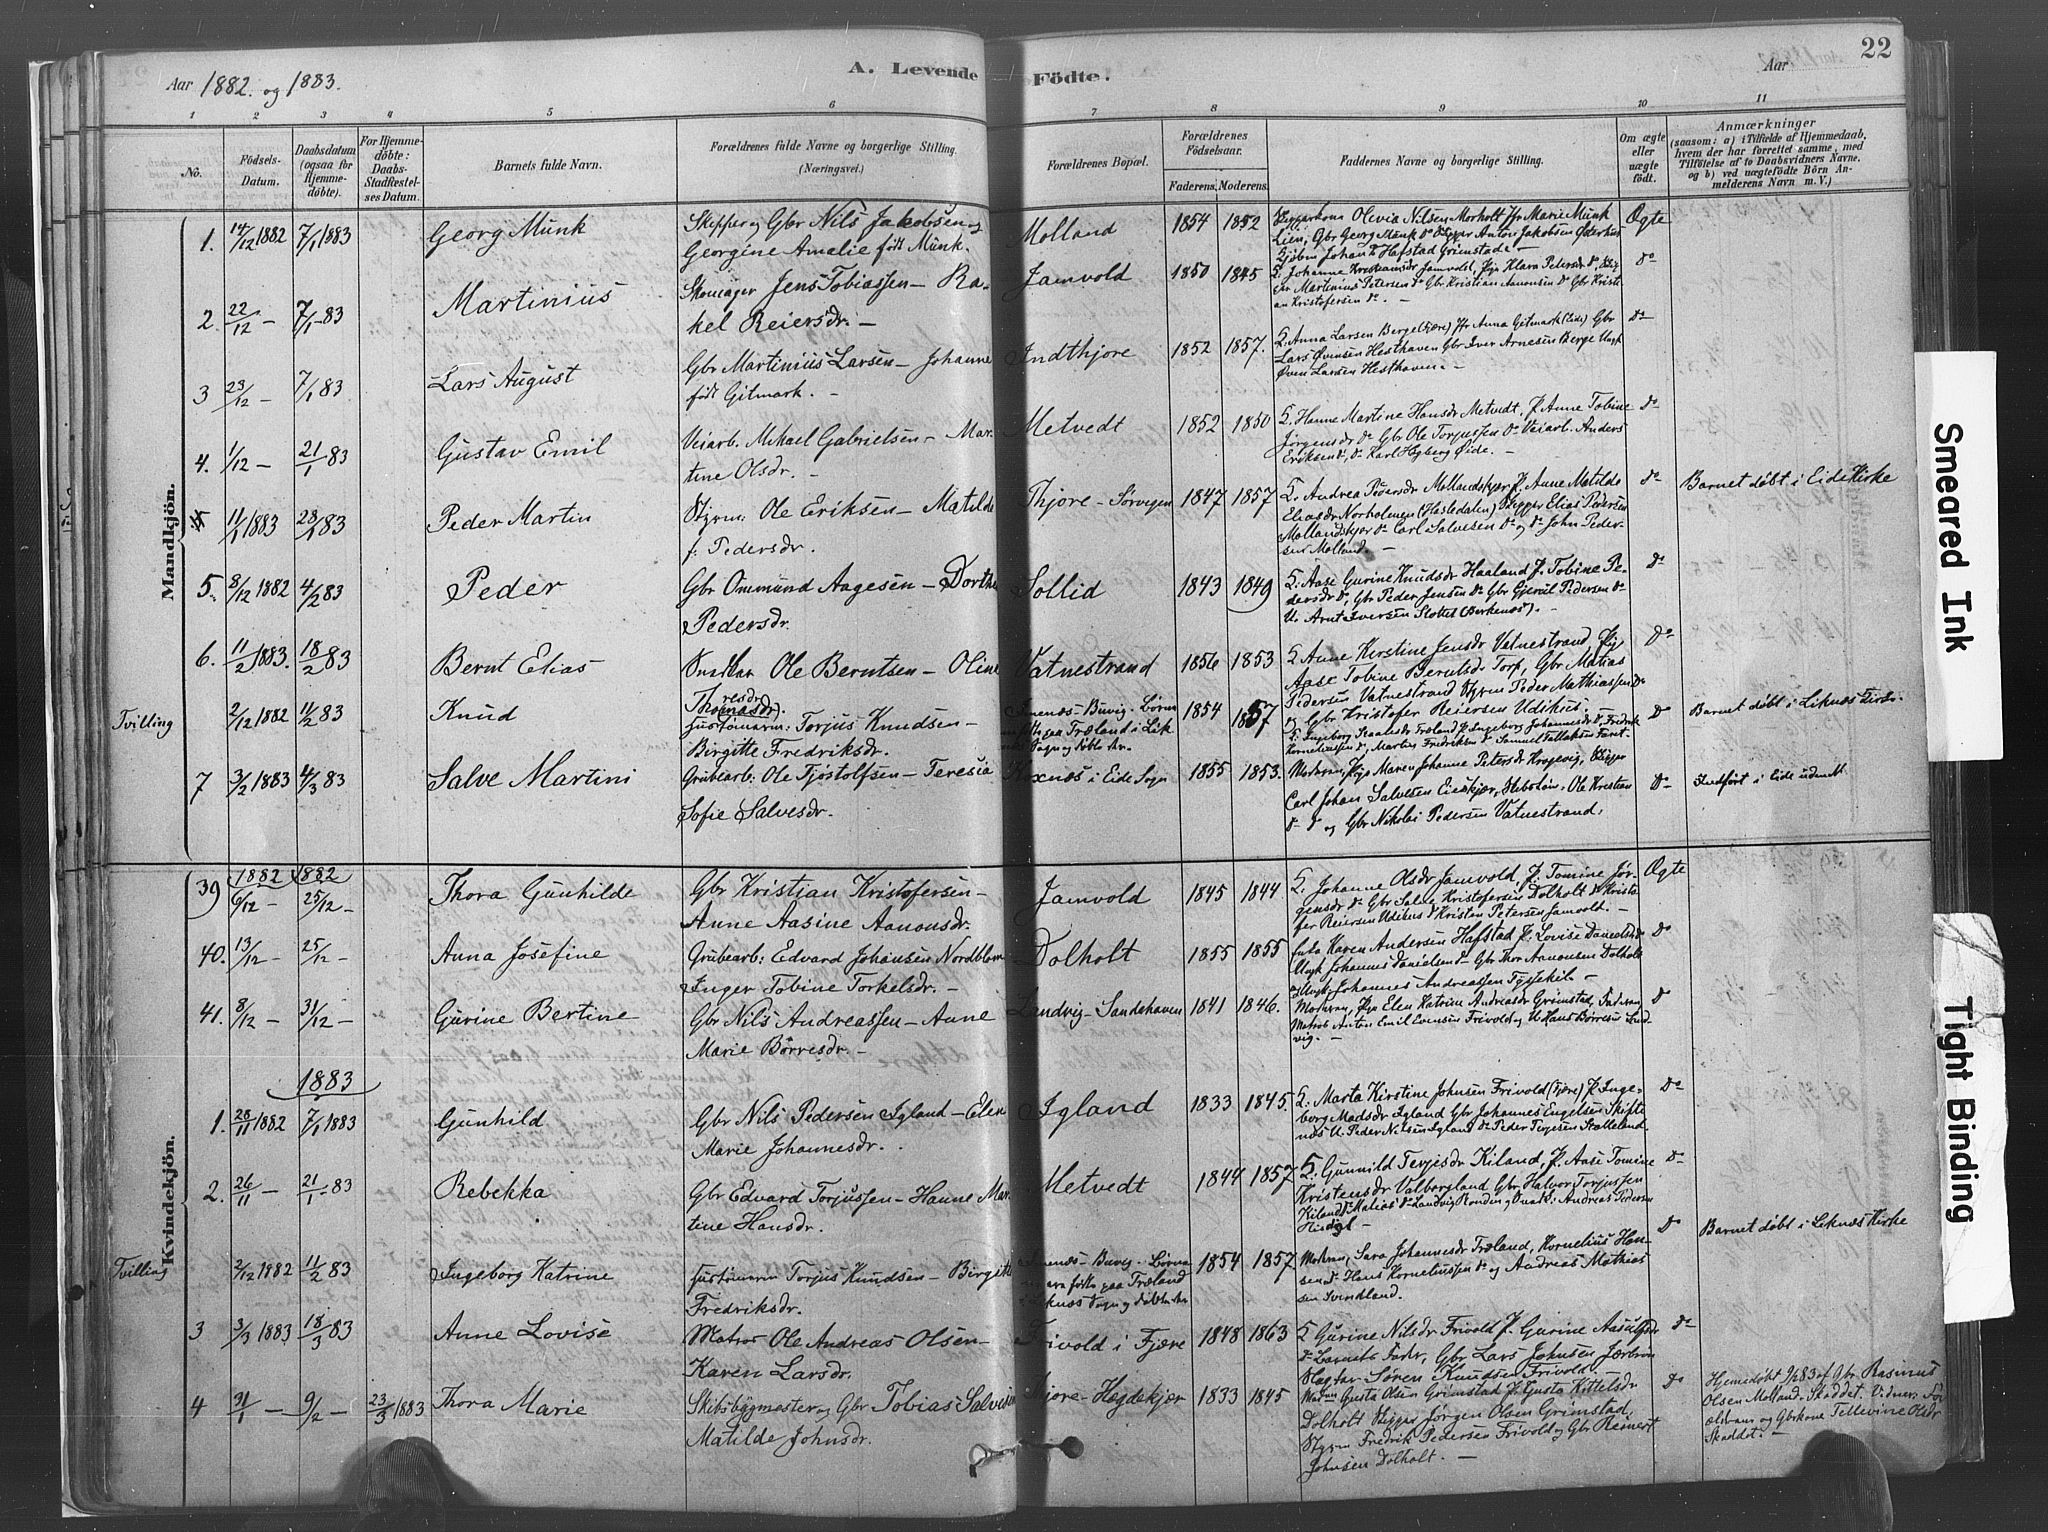 22
A. Levende Födte.
Aar 1882. og 1883.
Aar
1 2 3 4 5 6 7 8 9 10 11
No.
Födsels-Datum.
Daabsdatum (ogsaa for Hjemmedöbte).
For Hjemmedöbte: Daabs-Stadfæstelses Datum.
Barnets fulde Navn.
Forældrenes fulde Navne og borgerlige Stilling. (Næringsvei.)
Forældrenes Bopæl.
Forældrenes Födselsaar.
Faderens. Moderens.
Faddernes Navne og borgerlige Stilling.
Om ægte eller uægte födt.
Anmærkninger
(saasom: a) i Tilfælde af Hjemmedaab, hvem der har forrettet samme, med Tilföielse af to Daabsvidners Navne, og b) ved uægtefödte Börn Anmelderens Navn m. V.)
Mandkjön.
1. 14/12 1882 7/1 1883 Georg Munk Skipper og Gbr Nils Jakobsen og Georgine Amalie født Munk. Molland 1854 1852 Olevia Nilsen Morholt Jfr Marie Munk Lien, Gbr Georg Munk Do Skipper Anton Jakobsen Østerhus Johan Hafstad Grimstad Ægte
2. 22/12 – 7/1 – 83 Martinius Skomager Jens Tobiassen – Rakel Reiersdr. – Jamvold 1850 1845 Johanne Jamvold, Pige Klara Petersdr Do Martinius Petersen Do Gbr Kristian Aanonsen Do Gbr Kristian Kristofersen Do. – Do
3 23/12 – 7/1 83 Lars August Gbr Martinius Larsen – Johanne født Gitmark. – Indthjore 1852 1857. K. Anna Larsen Berge (Fjære) Jfr Anna Gitmark (Eide) Gbr Lars Øvensen Hesthaven Gbr Iver Arnesen Berge Ungk Øven Larsen Hesthaven. – Do
4. 1/12 – 21/1 83 Gustav Emil Veiarb. Mikael Gabrielsen – Martine Olsdr. – Metvedt 1852 1850 K. Hanne Martine Hansdr Metvedt, P. Anne Tobine Jørgensdr Do Gbr Ole Torjussen Do Veiarb. Anders Eriksen Do, Do Karl Høgberg Øide. – Do
5 11/1 1883 28/1 83 Peder Martin Styrm: Ole Eriksen – Matilde f. Pedersdr. Thjore – Sørvigen 1847 1857 K. Andrea Pedersdr Mollandskjær P. Anne Matilde Eliasdr Norholmen (Hasledalen) Skipper Elias Pedersen Mollandskjær Do Carl Salvesen Do og Do John Pedersen Molland. – Do Barnet døbt i Eide Kirke
5. 8/12 1882 4/2 83 Peder Gbr Ommund Aagesen – Dorthe Pedersdr. Sollid 1843 1849 K: Aase Gurine Knudsdr Haaland P. Tobine Pedersdr Do, Gbr Peder Jensen Do Gbr Gjeruel Pedersen Do U. Arnt Iversen Slottet (Birkenæs). – Do
6. 11/2 1883. 18/2 83 Bernt Elias Ole Berntsen – Oline Thoresdr. Vatnestrand 1856 1853 K Anne Kirstine Jensdr Vatnestrand Pig Aase Tobine Berntsdr Torp, Gbr Matias Pedersen Vatnestrand Styrm Peder Mathiassen Do og Gbr Kristofer Reiersen Udikus. Do
Tvilling 2/12 1882 11/2 83 Knud Torjus Knudsen – Birgitte Fredriksdr. Buvig. 1854 1857 K. Ingeborg Træland P. Ingeborg Johannesdr Do, Fredrik Korneliussen Do, Martin Fredriksen Do Do Barnet døbt i Liknæs Kirke.
7 3/2 1883 4/3 83 Salve Martini Grubearb: Ole Tjøstolfsen – Teresia Sofie Salvesdr. i Eide Sogn 1855 1853. Modrm, Pige Maren Johanne Petersdr Krogevig, Skipper Carl Johan Salvesen Ole Kristian Do Do og Gbr Nikolai Pedersen Vatnestrand. Do Indført i Eide uden N
Kvindekjön.
39 1882 6/12 – 1882 25/12 – Thora Gunhilde Gbr Kristian Kristofersen – Anne Aasine Aanonsdr. Jamvold 1845 1844 K. Johanne Olsdr Jamvold, P. Tomine Jørgensdr Do Gbr Salve Kristofersen Dolholt Do Kristofer Reiersen Udikus Do Kristen Petersen Jamvold. – Ægte
40. 13/12 – 25/12 – Anna Josefine Grubearb: Edvard Johansen Nordblom Inger Tobine Torkelsdr. – Dolholt 1855 1855 Karen Andersen Hafstad P. Lovise Danielsdr Do Ungk Johannes Danielsen Do Gbr Thor Aanonsen Dolholt Ungk. Johannes Andreassen Do
41. 8/12 – 31/12 – Gurine Bertine Gbr Nils Andreassen – Anne Marie Børresdr. – Landvig – Sandehaven 1841 1846. Modrm, Pige Elen Katrine Andreasdr Grimstad, Faderen, Matros Anton Emil Evensen Frivold og U. Hans Børresen Landvig. – Do
1883
1. 28/11 1882 7/1 1883 Gunhild Gbr Nils Pedersen Igland – Elen Marie Johannesdr. Igland 1833 1845. K. Marta Kirstine Johnsen Frivold (Fjære) P. Ingeborg Madsdr Igland Gbr Johannes Engelsen Skiftenæs U. Peder Nilsen Igland Do Peder Terjesen Stælleland. Do
2. 26/11 – 21/1 83 Rebekka Gbr Edvard Torjussen – Hanne Martine Hansdr. Metvedt 1844 1857 K. Gunnild Terjesdr Kiland, P. Aase Tomine Kristensdr Valborgland Gbr Halvor Torjussen Kiland Do Matias Do Landvig Andreas Pedersen Do
Tvilling 2/12 1882 11/2 83 Ingeborg Katrine Torjus Knudsen – Birgitte Fredriksdr. Buvig. 1854 1857 Modrm, Sara Johannesdr Træland, Kornelius Hansen Do Hans Korneliussen Do og Andreas Mathiassen Svindland. Do Barnet døbt i Liknæs Kirke
3 3/3 1883 18/3 83 Anne Lovise Matros Ole Andreas Olsen – Karen Larsdr. Frivold i Fjære 1848 1863 K Gurine Nilsdr Frivold P. Gurine Aasulfsdr Do Barnets Fader, Gbr Lars Johnsen Søren Knudsen Frivold – Do
4 31/1 – 9/2 – 23/3 1883 Thora Marie Skibsbygmester og Gbr Tobias Salvesen Matilde Johnsdr. Hægdekjær 1833 1845 Gusta Olsen Grimstad P. Gusta Kittelsdr Dolholt Skipper Jørgen Olsen Grimstad, Styrm Fredrik Pedersen Frivold og Gbr Reinert Johnsen Dolholt. – Do Hjemedøbt 9/2 83 af Gbr. Rasmus Olsen Molland, Skaddet. Vidner: og Gbrkone Tellevine Olsdr Skaddet. –
Smeared Ink
Tight Binding